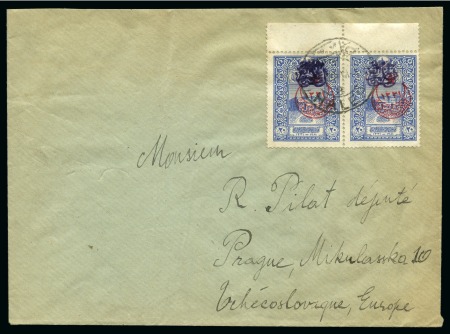 Monsieur
R. Pilat deputé
Prague, Mikulasska 10
Tchécoslovique, Europe